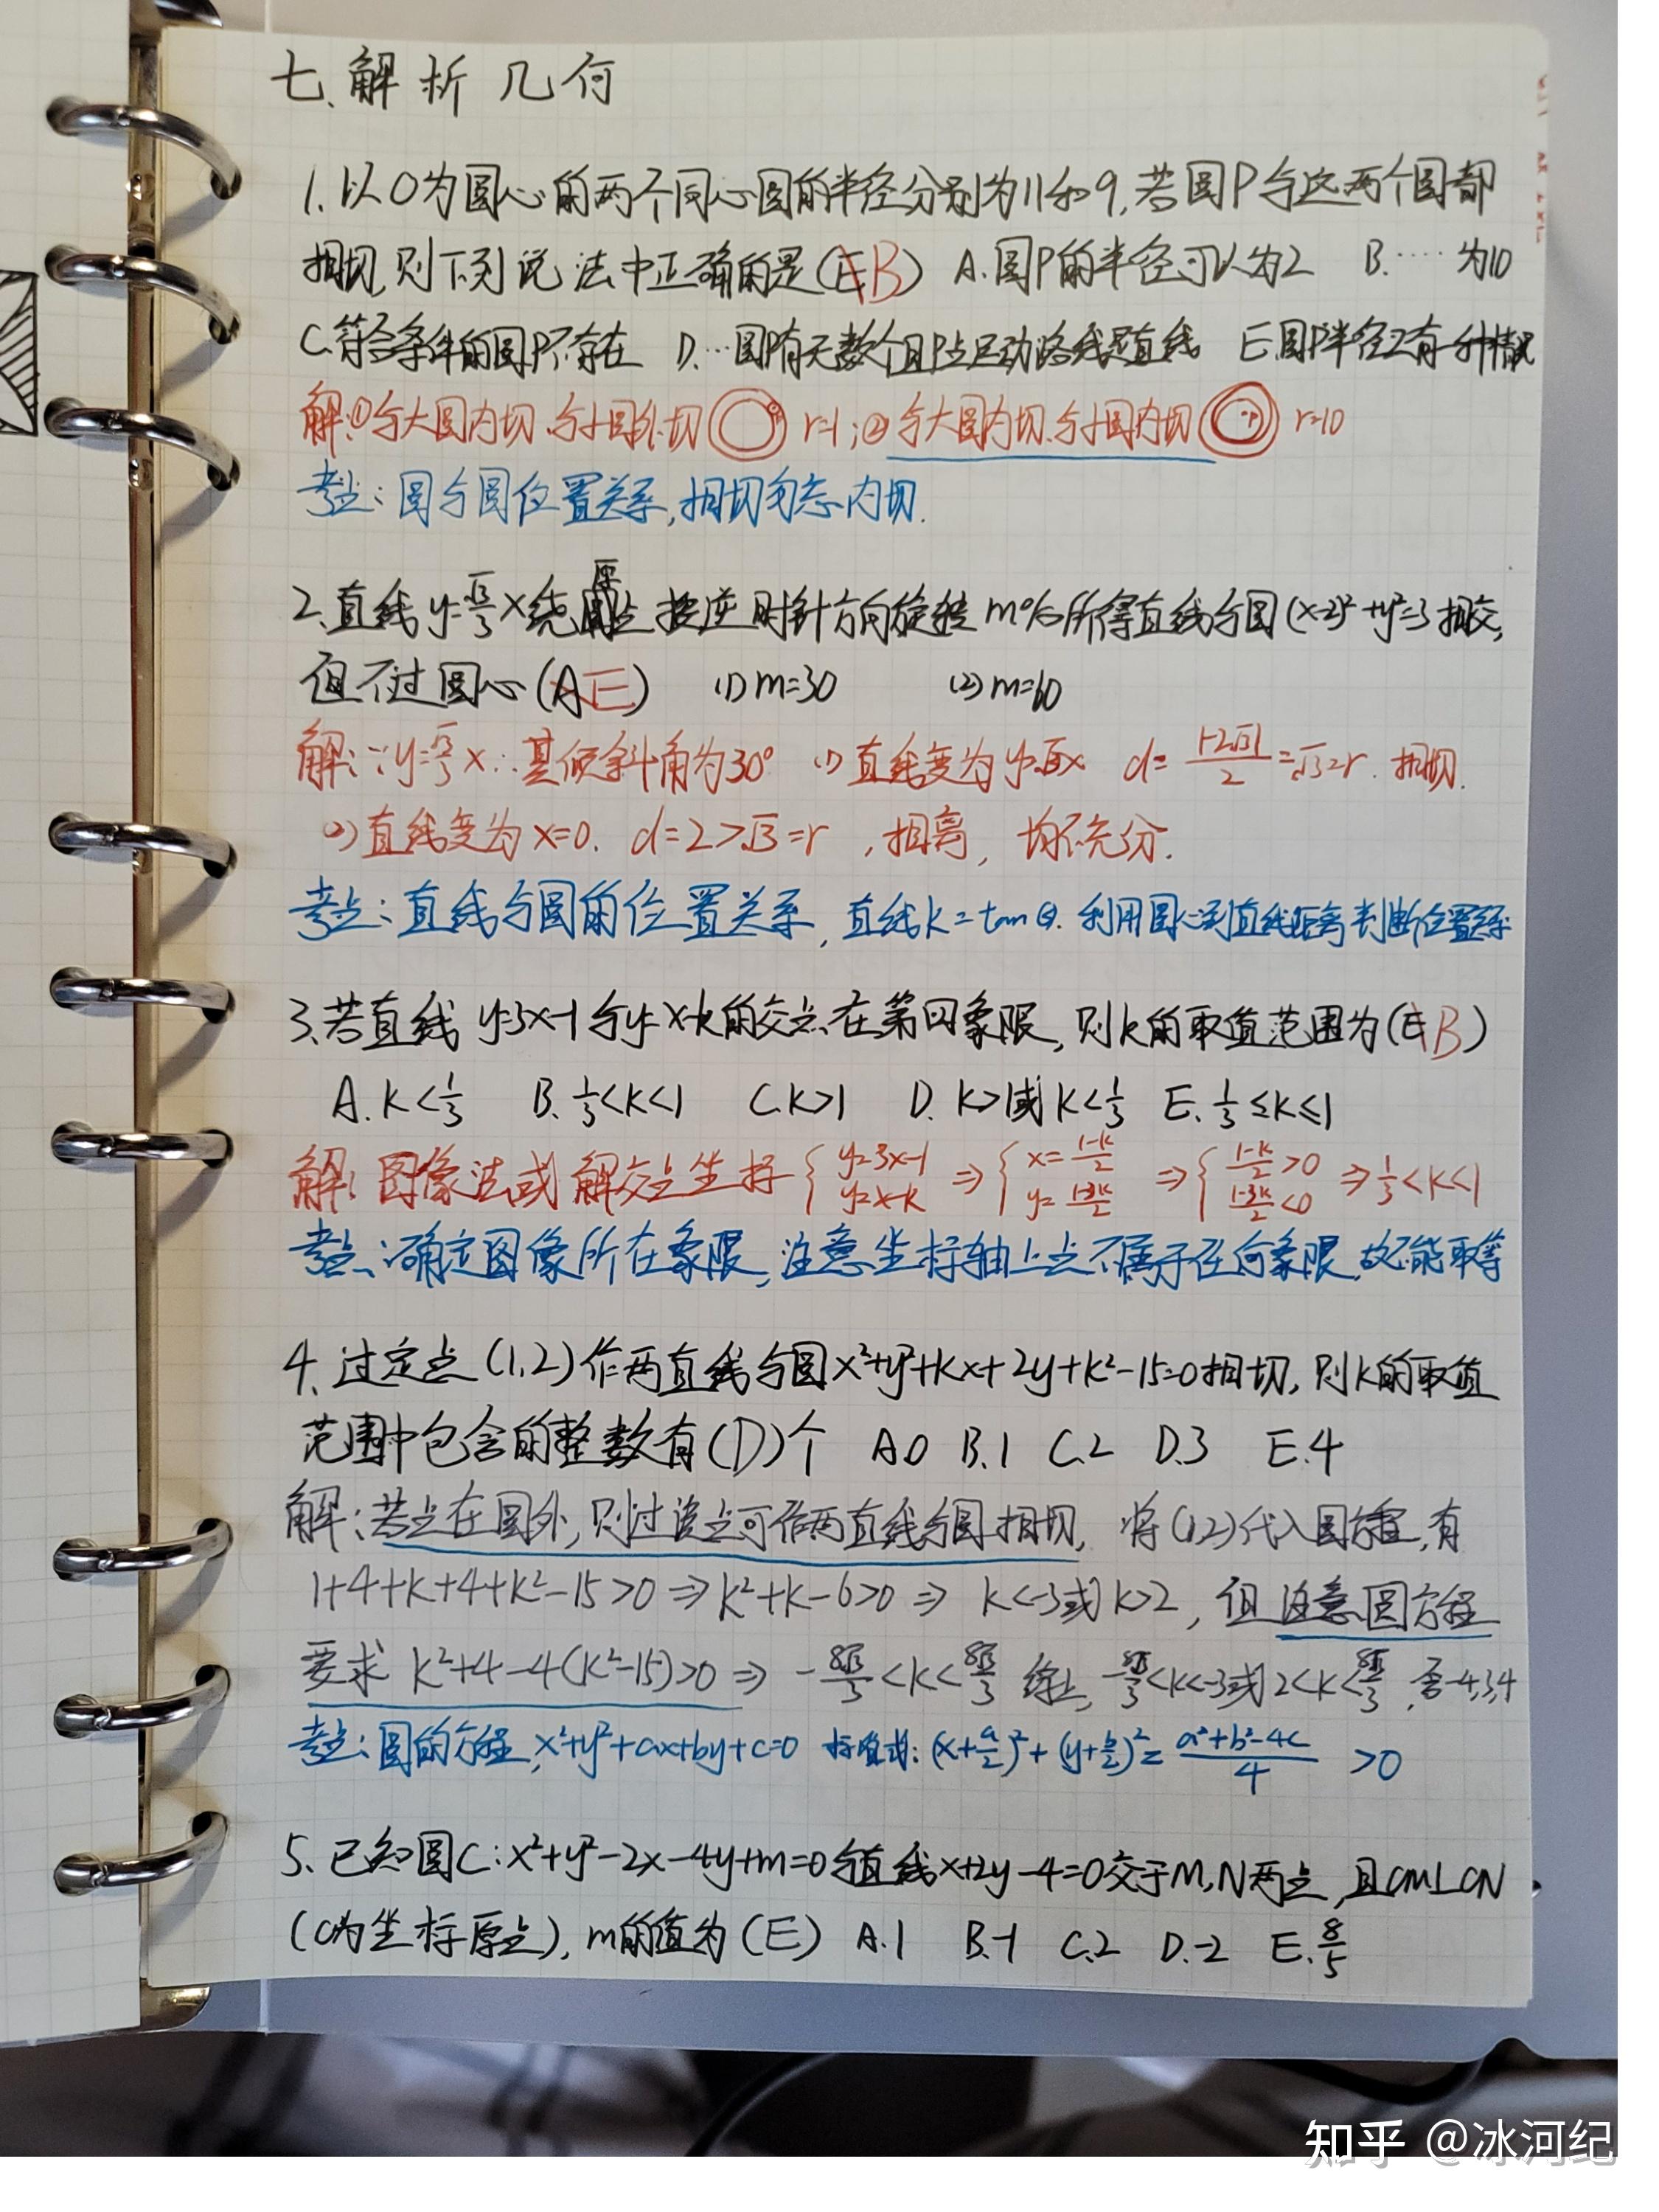 七、解析几何
1.以O为圆心的两个同心圆的半径分别为11和9,若圆P与这两个圆都
相切,则下列说法中正确的是(EB) A.圆P的半径可以为2 B.…… 为10
C.符合条件的圆P不存在 D.…圆P有无数个且P点运动路线是直线 E.圆P半径只有一种情况
解:①与大圆内切、与小圆外切 r=1;②与大圆内切、与小圆内切 r=10
考点:圆与圆位置关系,相切勿忘内切.
2.直线y=√3/3 x绕原点按逆时针方向旋转m°后所得直线与圆(x-2)²+y²=3相交,
但不过圆心(AE) (1)m=30 (2)m=60
解:∵y=√3/3 x∴其倾斜角为30° (1)直线变为y=√3x d=|-2√3|/2=√3=r.相切.
(2)直线变为x=0. d=2>√3=r,相离,均不充分.
考点:直线与圆的位置关系,直线k=tanθ.利用圆心到直线距离判断位置关系
3.若直线y=3x-1与y=x-k的交点在第四象限,则k的取值范围为(EB)
A.k<1/3 B.1/3<k<1 C.k>1 D.k>1或k<1/3 E.1/3≤k≤1
解:图像法或解交点坐标{y=3x-1 y=x-k ⇒{x=1-k/2 y=1-3k/2 ⇒{1-k/2>0 1-3k/2<0 ⇒1/3<k<1
考点:确定图像所在象限,注意坐标轴上点不属于任何象限,故不能取等
4.过定点(1,2)作两直线与圆x²+y²+kx+2y+k²-15=0相切,则k的取值
范围中包含的整数有(D)个 A.0 B.1 C.2 D.3 E.4
解:若点在圆外,则过该点可作两直线与圆相切,将(1,2)代入圆方程,有
1+4+k+4+k²-15>0⇒k²+k-6>0⇒k<-3或k>2,但注意圆方程
要求k²+4-4(k²-15)>0⇒-8√3/3<k<8√3/3 综上,-8√3/3<k<-3或2<k<8√3/3,含-4,3,4
考点:圆的方程,x²+y²+ax+by+c=0 标准式:(x+a/2)²+(y+b/2)²=a²+b²-4c/4 >0
5.已知圆C:x²+y²-2x-4y+m=0与直线x+2y-4=0交于M,N两点,且OM⊥ON
(O为坐标原点),m的值为(E) A.1 B.-1 C.2 D.-2 E.8/5
知乎 @冰河纪